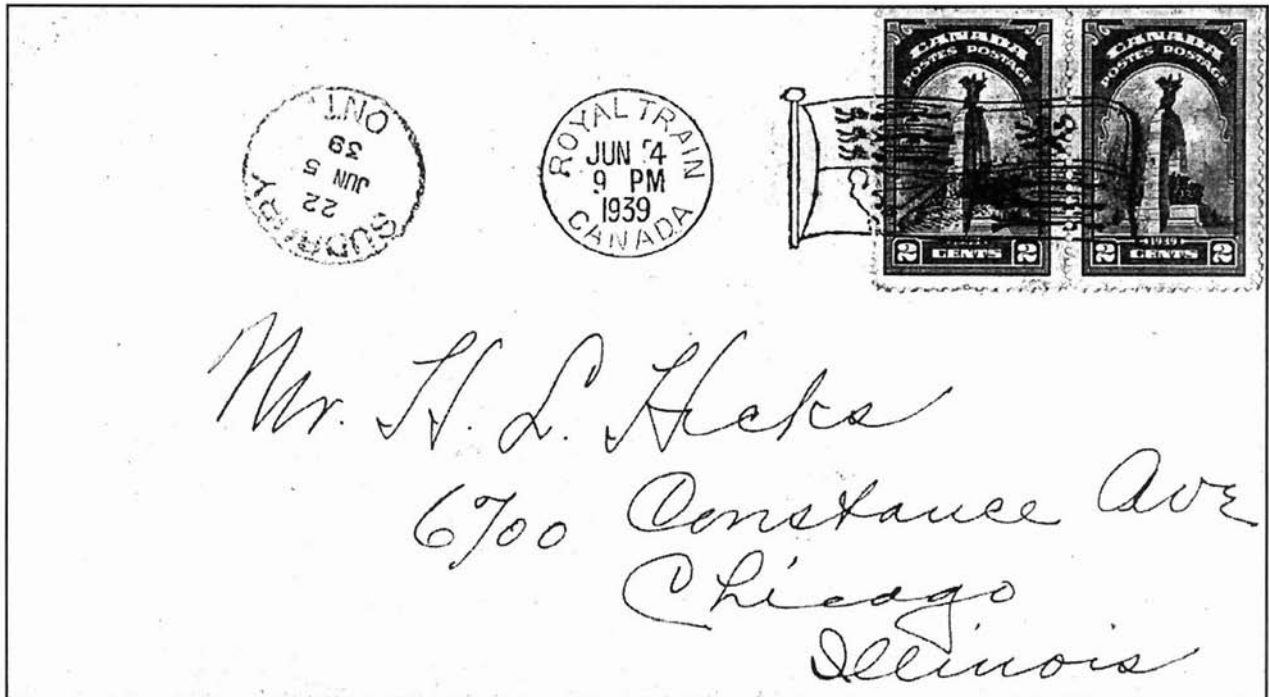 SUDBURY
22
JUN 5
39
ONT.
ROYAL TRAIN
JUN 4
9 PM
1939
CANADA
CANADA
POSTES POSTAGE
2 CENTS 2
CANADA
POSTES POSTAGE
1939
2 CENTS 2
Mr. H. L. Hicks
6700 Constance Ave
Chicago
Illinois